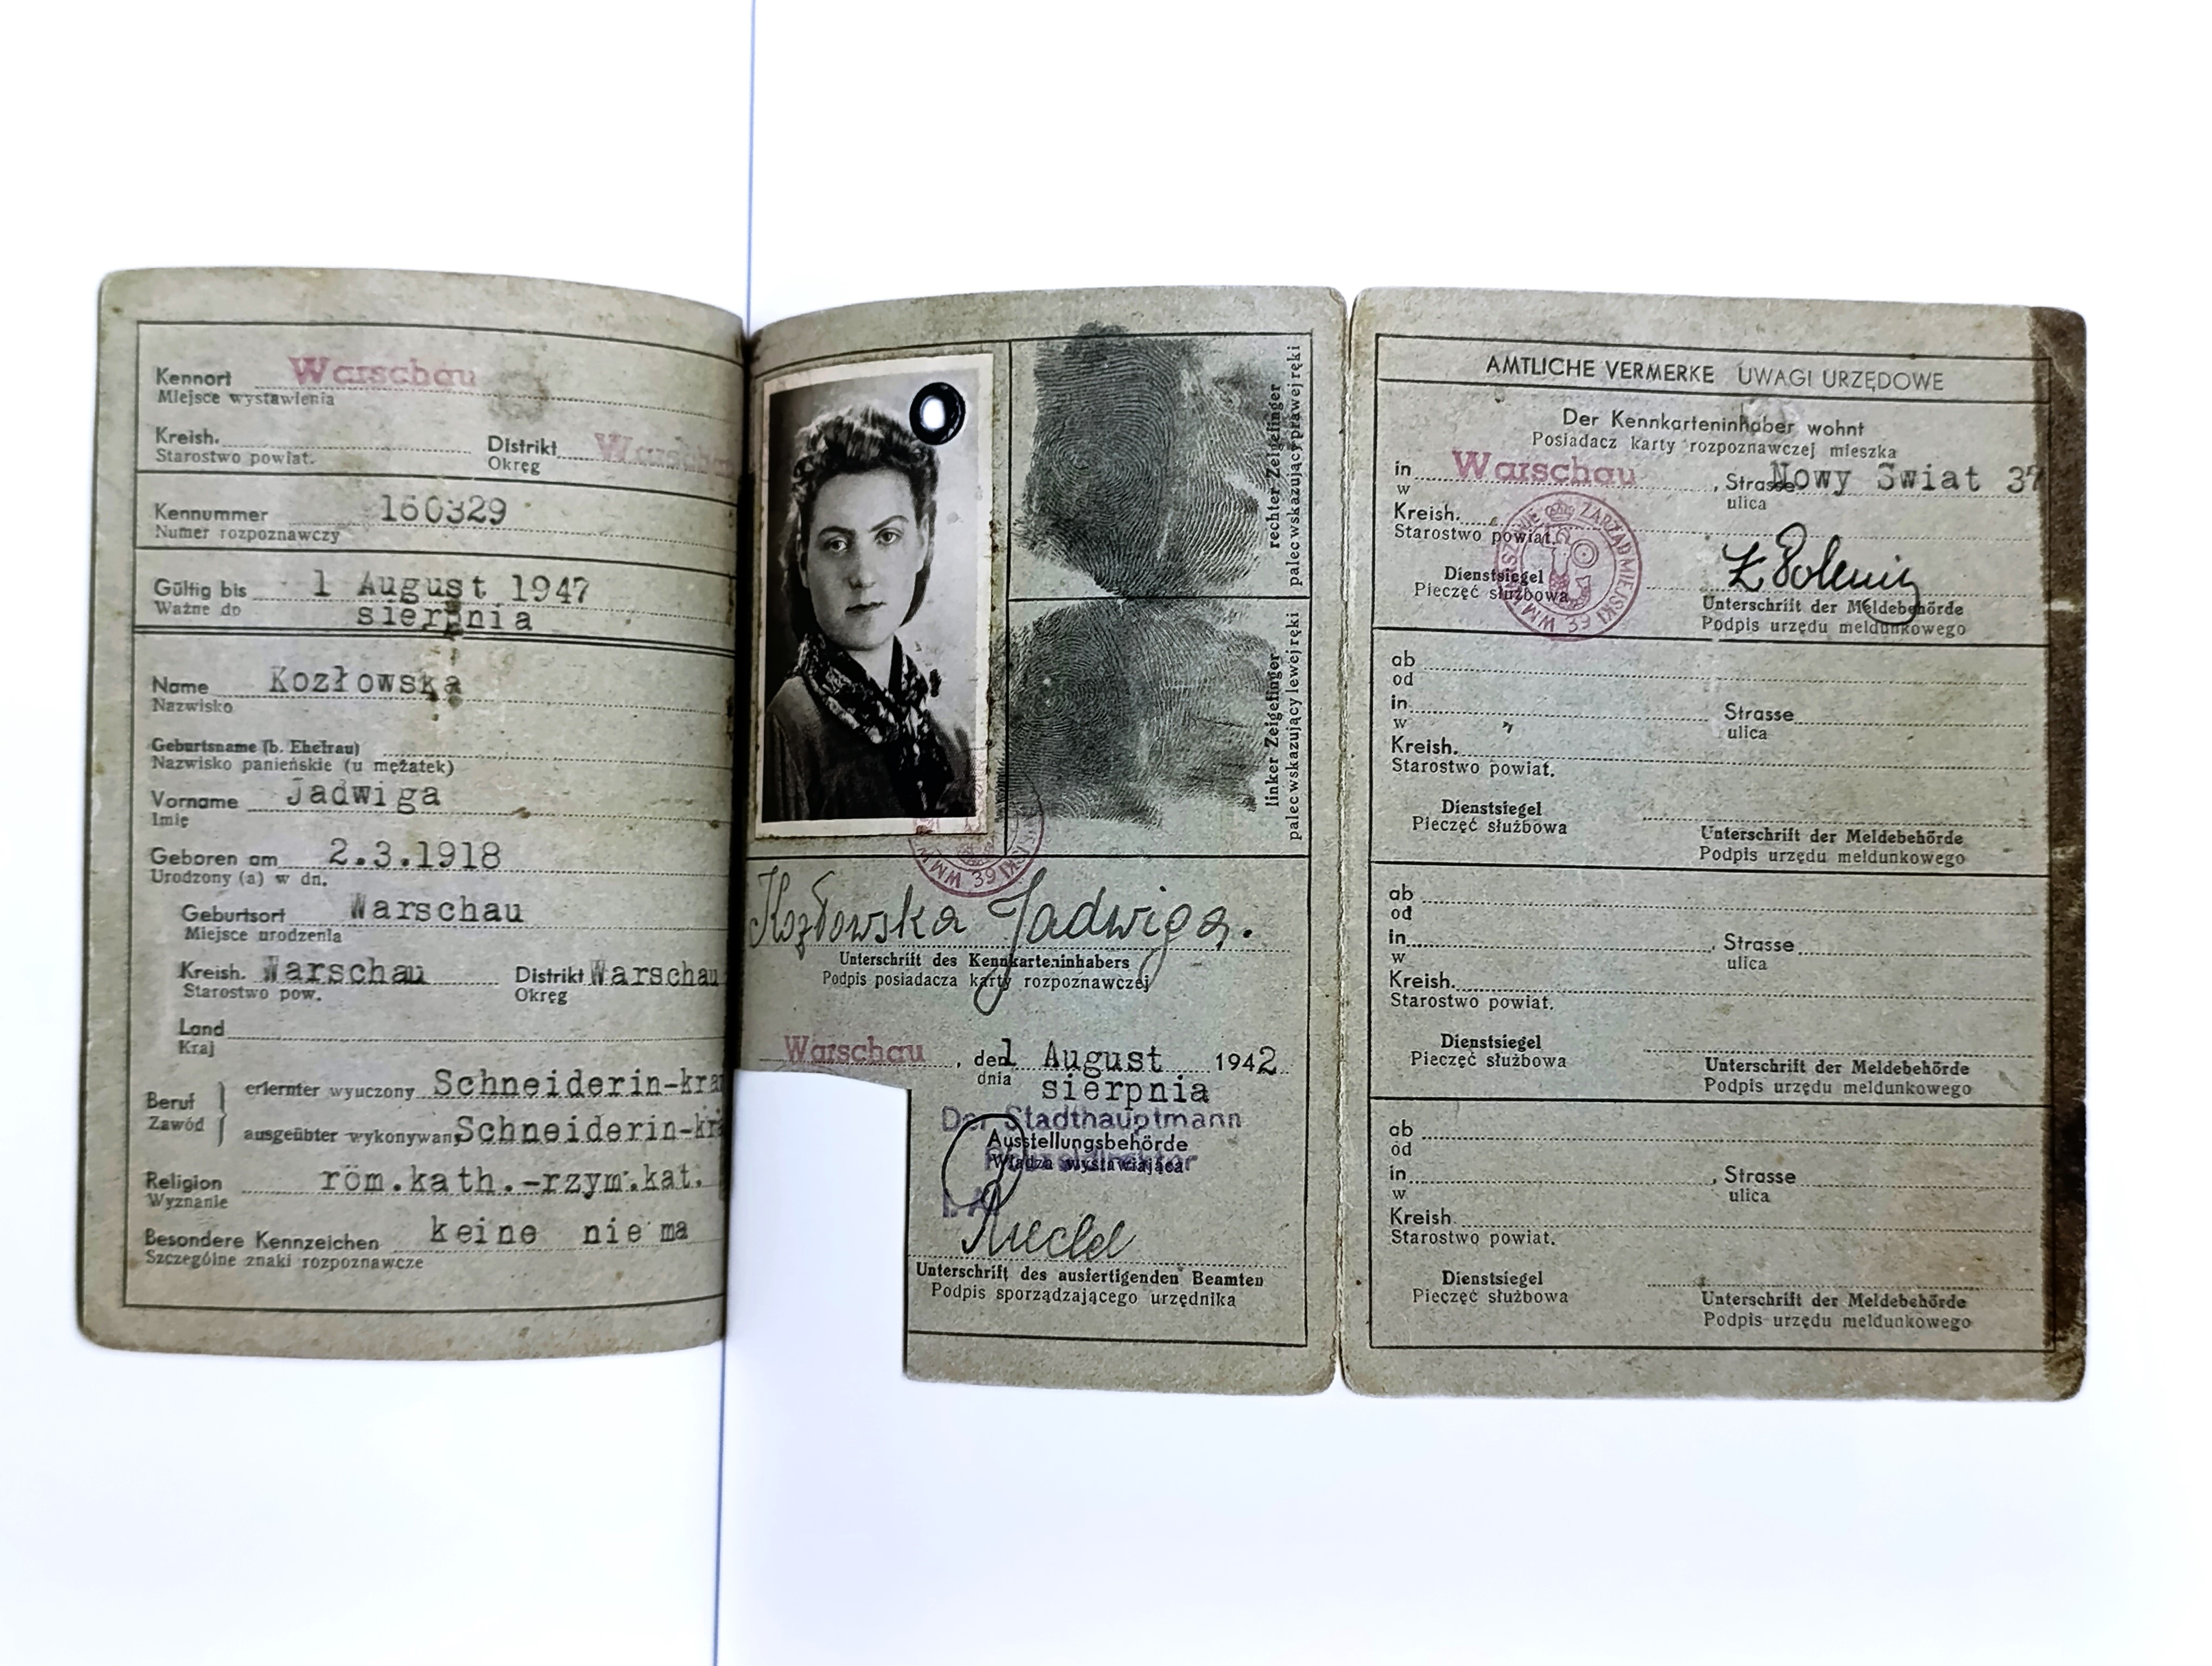 Kennort Warschau
Miejsce wystawienia
Kreish. Distrikt Warschau
Starostwo powiat. Okręg
Kennummer 160329
Numer rozpoznawczy
Gültig bis 1 August 1947
Ważne do sierpnia
Name Kozłowska
Nazwisko
Geburtsname (b. Ehefrau)
Nazwisko panieńskie (u mężatek)
Vorname Jadwiga
Imię
Geboren am 2.3.1918
Urodzony (a) w dn.
Geburtsort Warschau
Miejsce urodzenia
Kreish. Warschau Distrikt Warschau
Starostwo pow. Okręg
Land
Kraj
Beruf erlernter wyuczony Schneiderin-kra
Zawód ausgeübter wykonywany Schneiderin-kra
Religion röm.kath.-rzym.kat.
Wyznanie
Besondere Kennzeichen keine nie ma
Szczególne znaki rozpoznawcze
rechter Zeigefinger
palec wskazujący prawej ręki
linker Zeigefinger
palec wskazujący lewej ręki
WM 39
Kozłowska Jadwiga.
Unterschrift des Kennkarteninhabers
Podpis posiadacza karty rozpoznawczej
Warschau, den 1 August 1942
dnia sierpnia
Der Stadthauptmann
Ausstellungsbehörde
Władza wystawiająca
Unterschrift des ausfertigenden Beamten
Podpis sporządzającego urzędnika
AMTLICHE VERMERKE UWAGI URZĘDOWE
Der Kennkarteninhaber wohnt
Posiadacz karty rozpoznawczej mieszka
in Warschau, Strasse Nowy Swiat 37
w ulica
Kreish.
Starostwo powiat.
ZARZĄD MIEJSKI WM 39
Dienstsiegel
Pieczęć służbowa
Unterschrift der Meldebehörde
Podpis urzędu meldunkowego
ab
od
in Strasse
w ulica
Kreish.
Starostwo powiat.
Dienstsiegel
Pieczęć służbowa
Unterschrift der Meldebehörde
Podpis urzędu meldunkowego
ab
od
in , Strasse
w ulica
Kreish.
Starostwo powiat.
Dienstsiegel
Pieczęć służbowa
Unterschrift der Meldebehörde
Podpis urzędu meldunkowego
ab
od
in , Strasse
w ulica
Kreish.
Starostwo powiat.
Dienstsiegel
Pieczęć służbowa
Unterschrift der Meldebehörde
Podpis urzędu meldunkowego